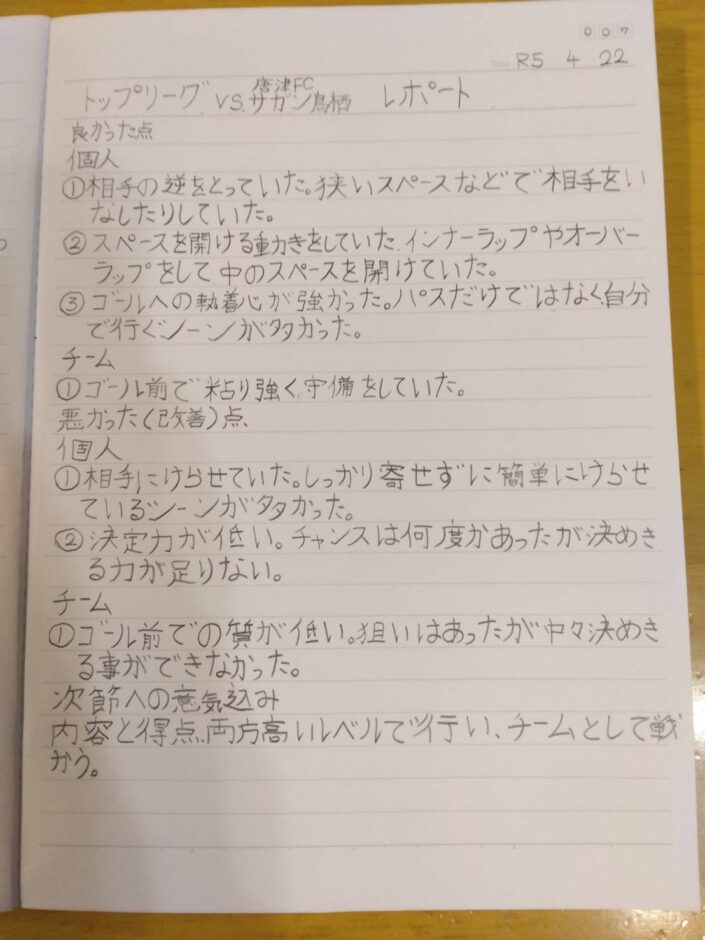 007
Date R5 4 22
トップリーグ VS. 唐津FC サガン鳥栖 レポート
良かった点
個人
①相手の逆をとっていた。狭いスペースなどで相手をい
なしたりしていた。
②スペースを開ける動きをしていた、インナーラップやオーバー
ラップをして中のスペースを開けていた。
③ゴールへの執着心が強かった。パスだけではなく、自分
で行くシーンが多かった。
チーム
①ゴール前で粘り強く守備をしていた。
悪かった(改善)点、
個人
①相手にけらせていた。しっかり寄せずに簡単にけらせ
ているシーンが多かった。
②決定力が低い。チャンスは何度かあったが決めき
る力が足りない。
チーム
①ゴール前での質が低い。狙いはあったが中々決めき
る事ができなかった。
次節への意気込み
内容と得点、両方高いレベルで行い、チームとして戦
かう。